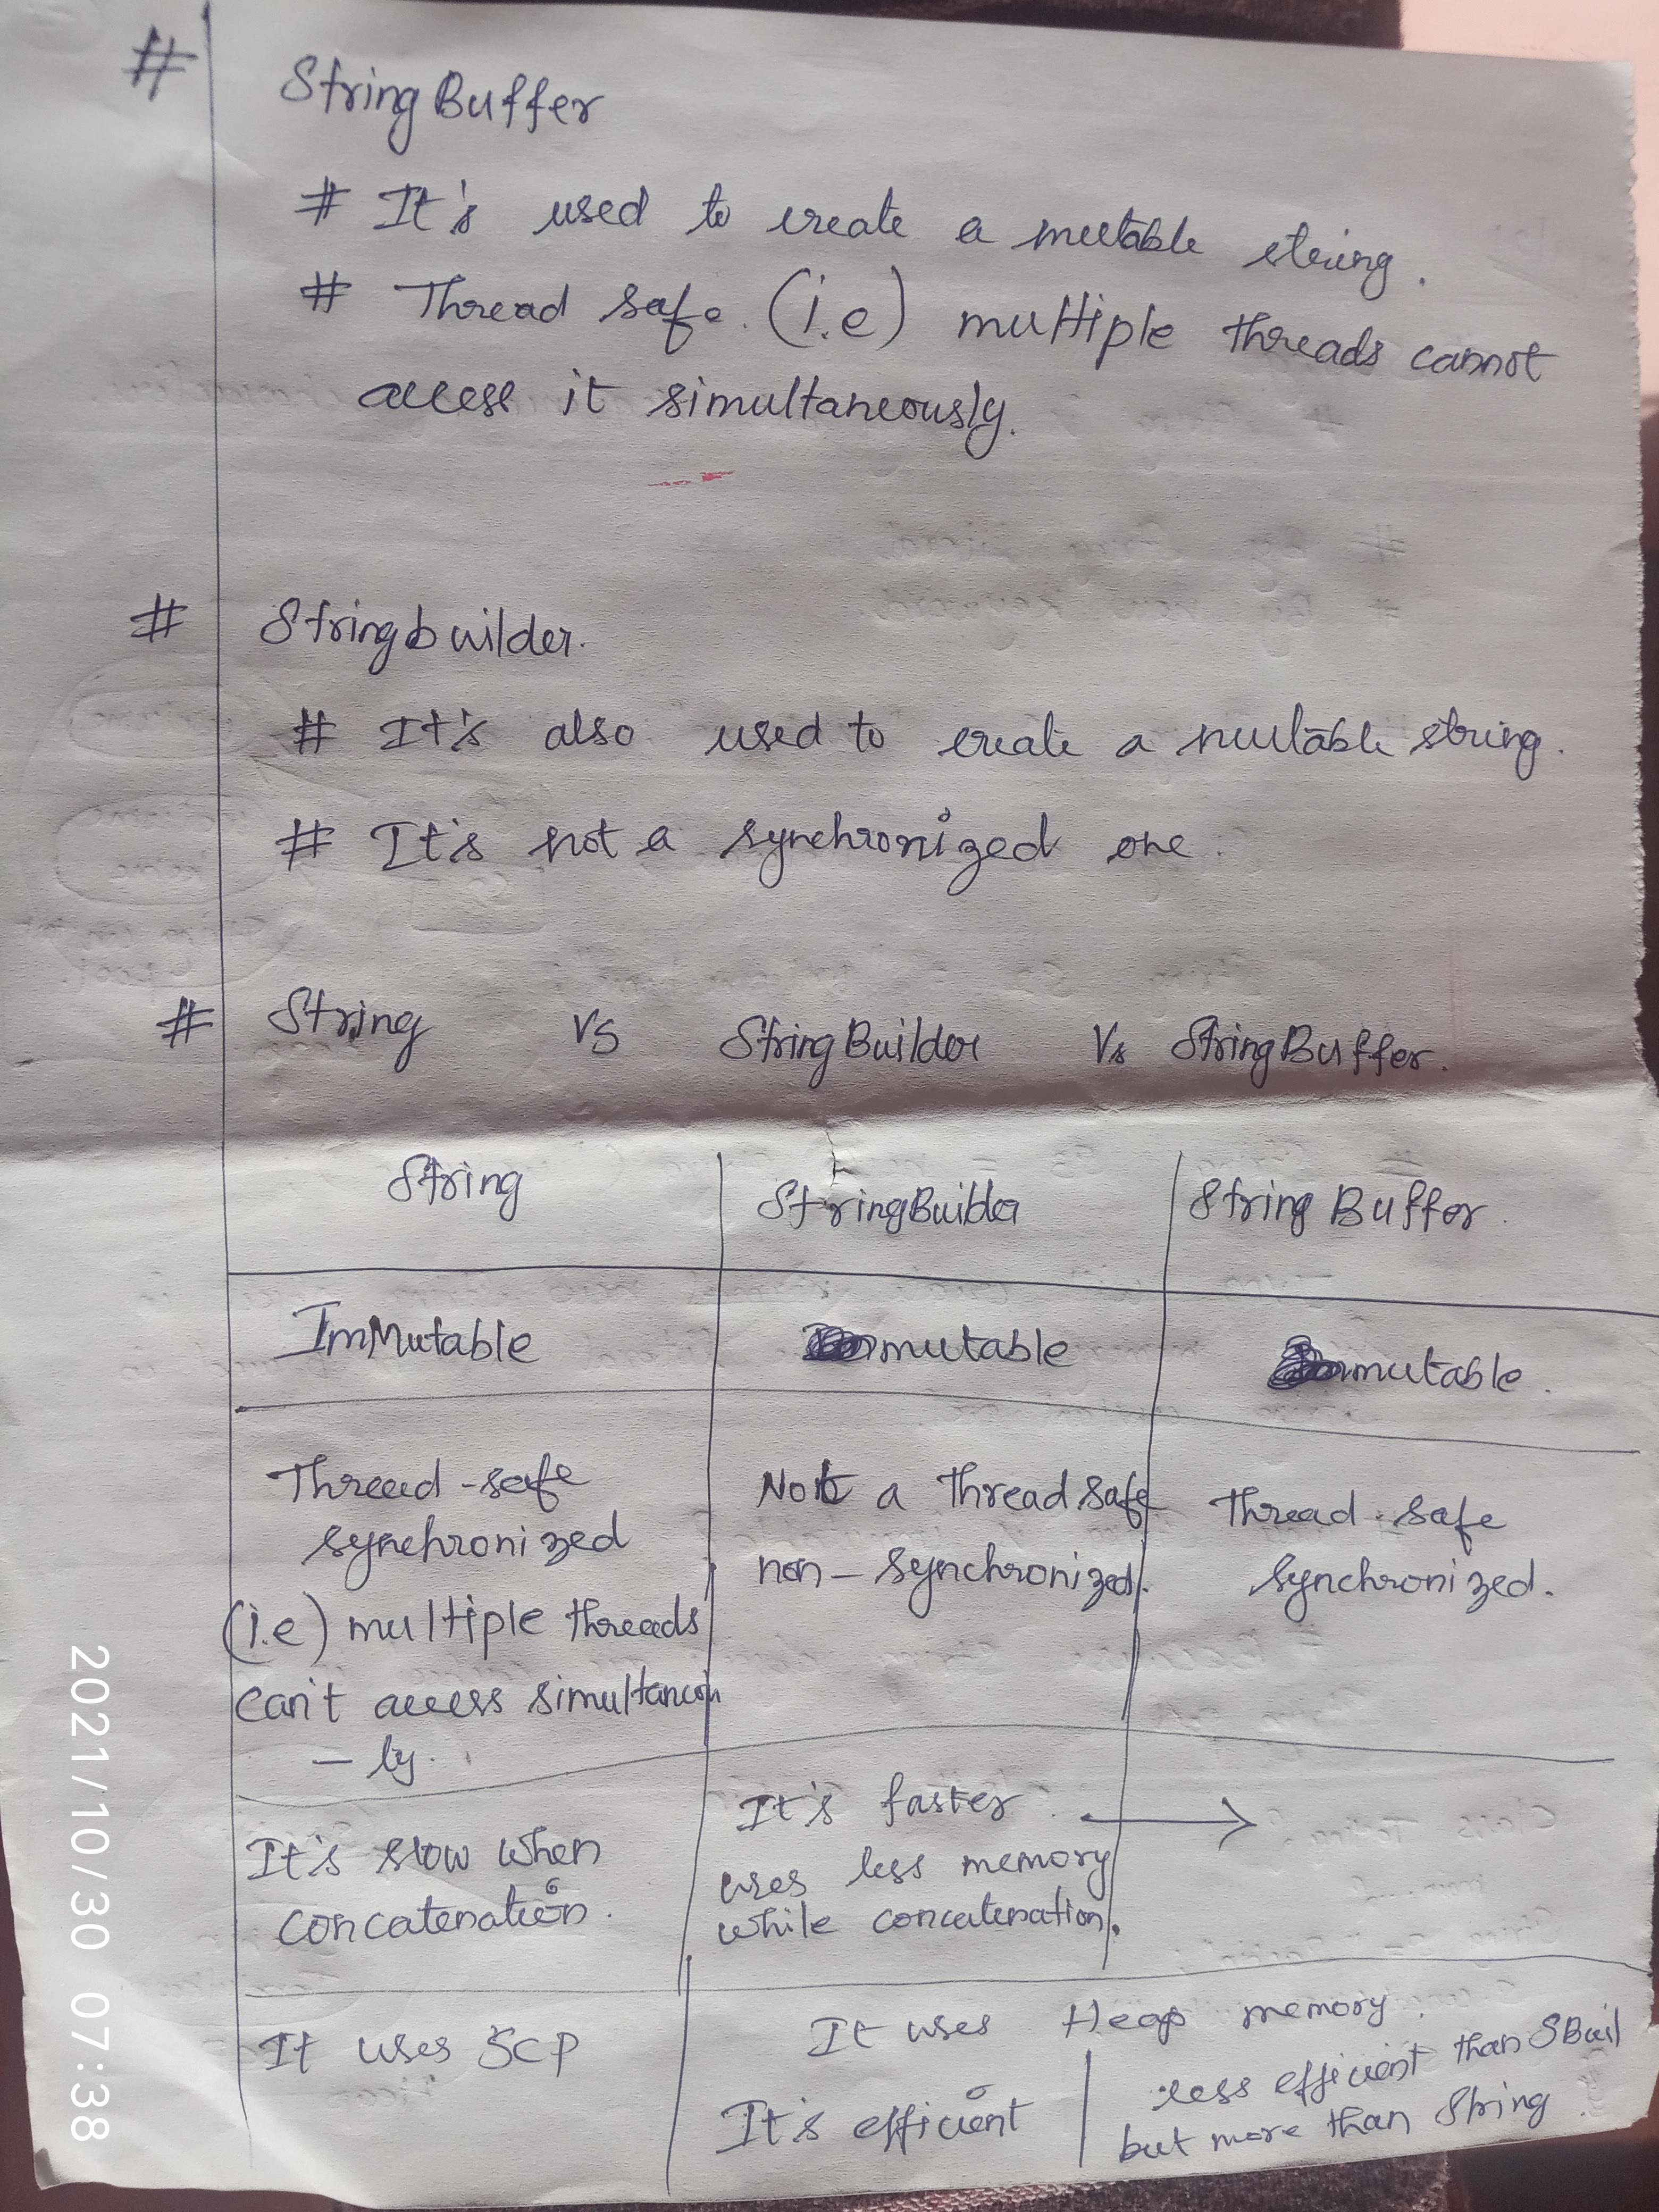 #
StringBuffer
# It's used to create a mutable string.
# Thread safe. (i.e) multiple threads cannot
access it simultaneously.
# Stringbuilder.
# It's also used to create a mutable string.
# It's not a synchronized one.
# String vs StringBuilder Vs StringBuffer.
String StringBuilder String Buffer.
ImMutable mutable mutable.
Thread-safe
synchronized
(i.e) multiple threads
can't access simultaneous
-ly.
Not a thread safe
non-synchronized.
Thread-safe
synchronized.
It's slow when
concatenation.
It's faster →
uses less memory
while concatenation.
It uses SCP
It uses Heap memory.
It's efficient
less efficient than SBuil
but more than String.
2021/10/30 07:38